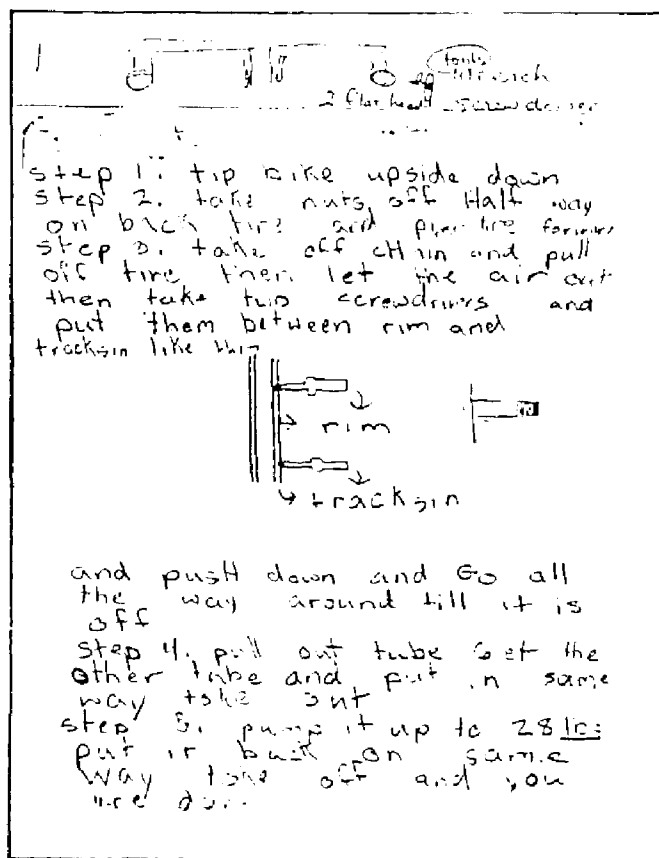 tools
wrench
2 flat head screwdriver
step 1. tip bike upside down
step 2. take nuts off Half way
on back tire and push tire forward
step 3. take off cHain and pull
off tire then let the air out
then take two screwdrivers and
put them between rim and
tracksin like this
rim
tracksin
and pusH down and Go all
the way around till it is
off
step 4. pull out tube Get the
other tube and put in same
way take out
step 5. pump it up to 28
put it back on same
way take off and you
are done